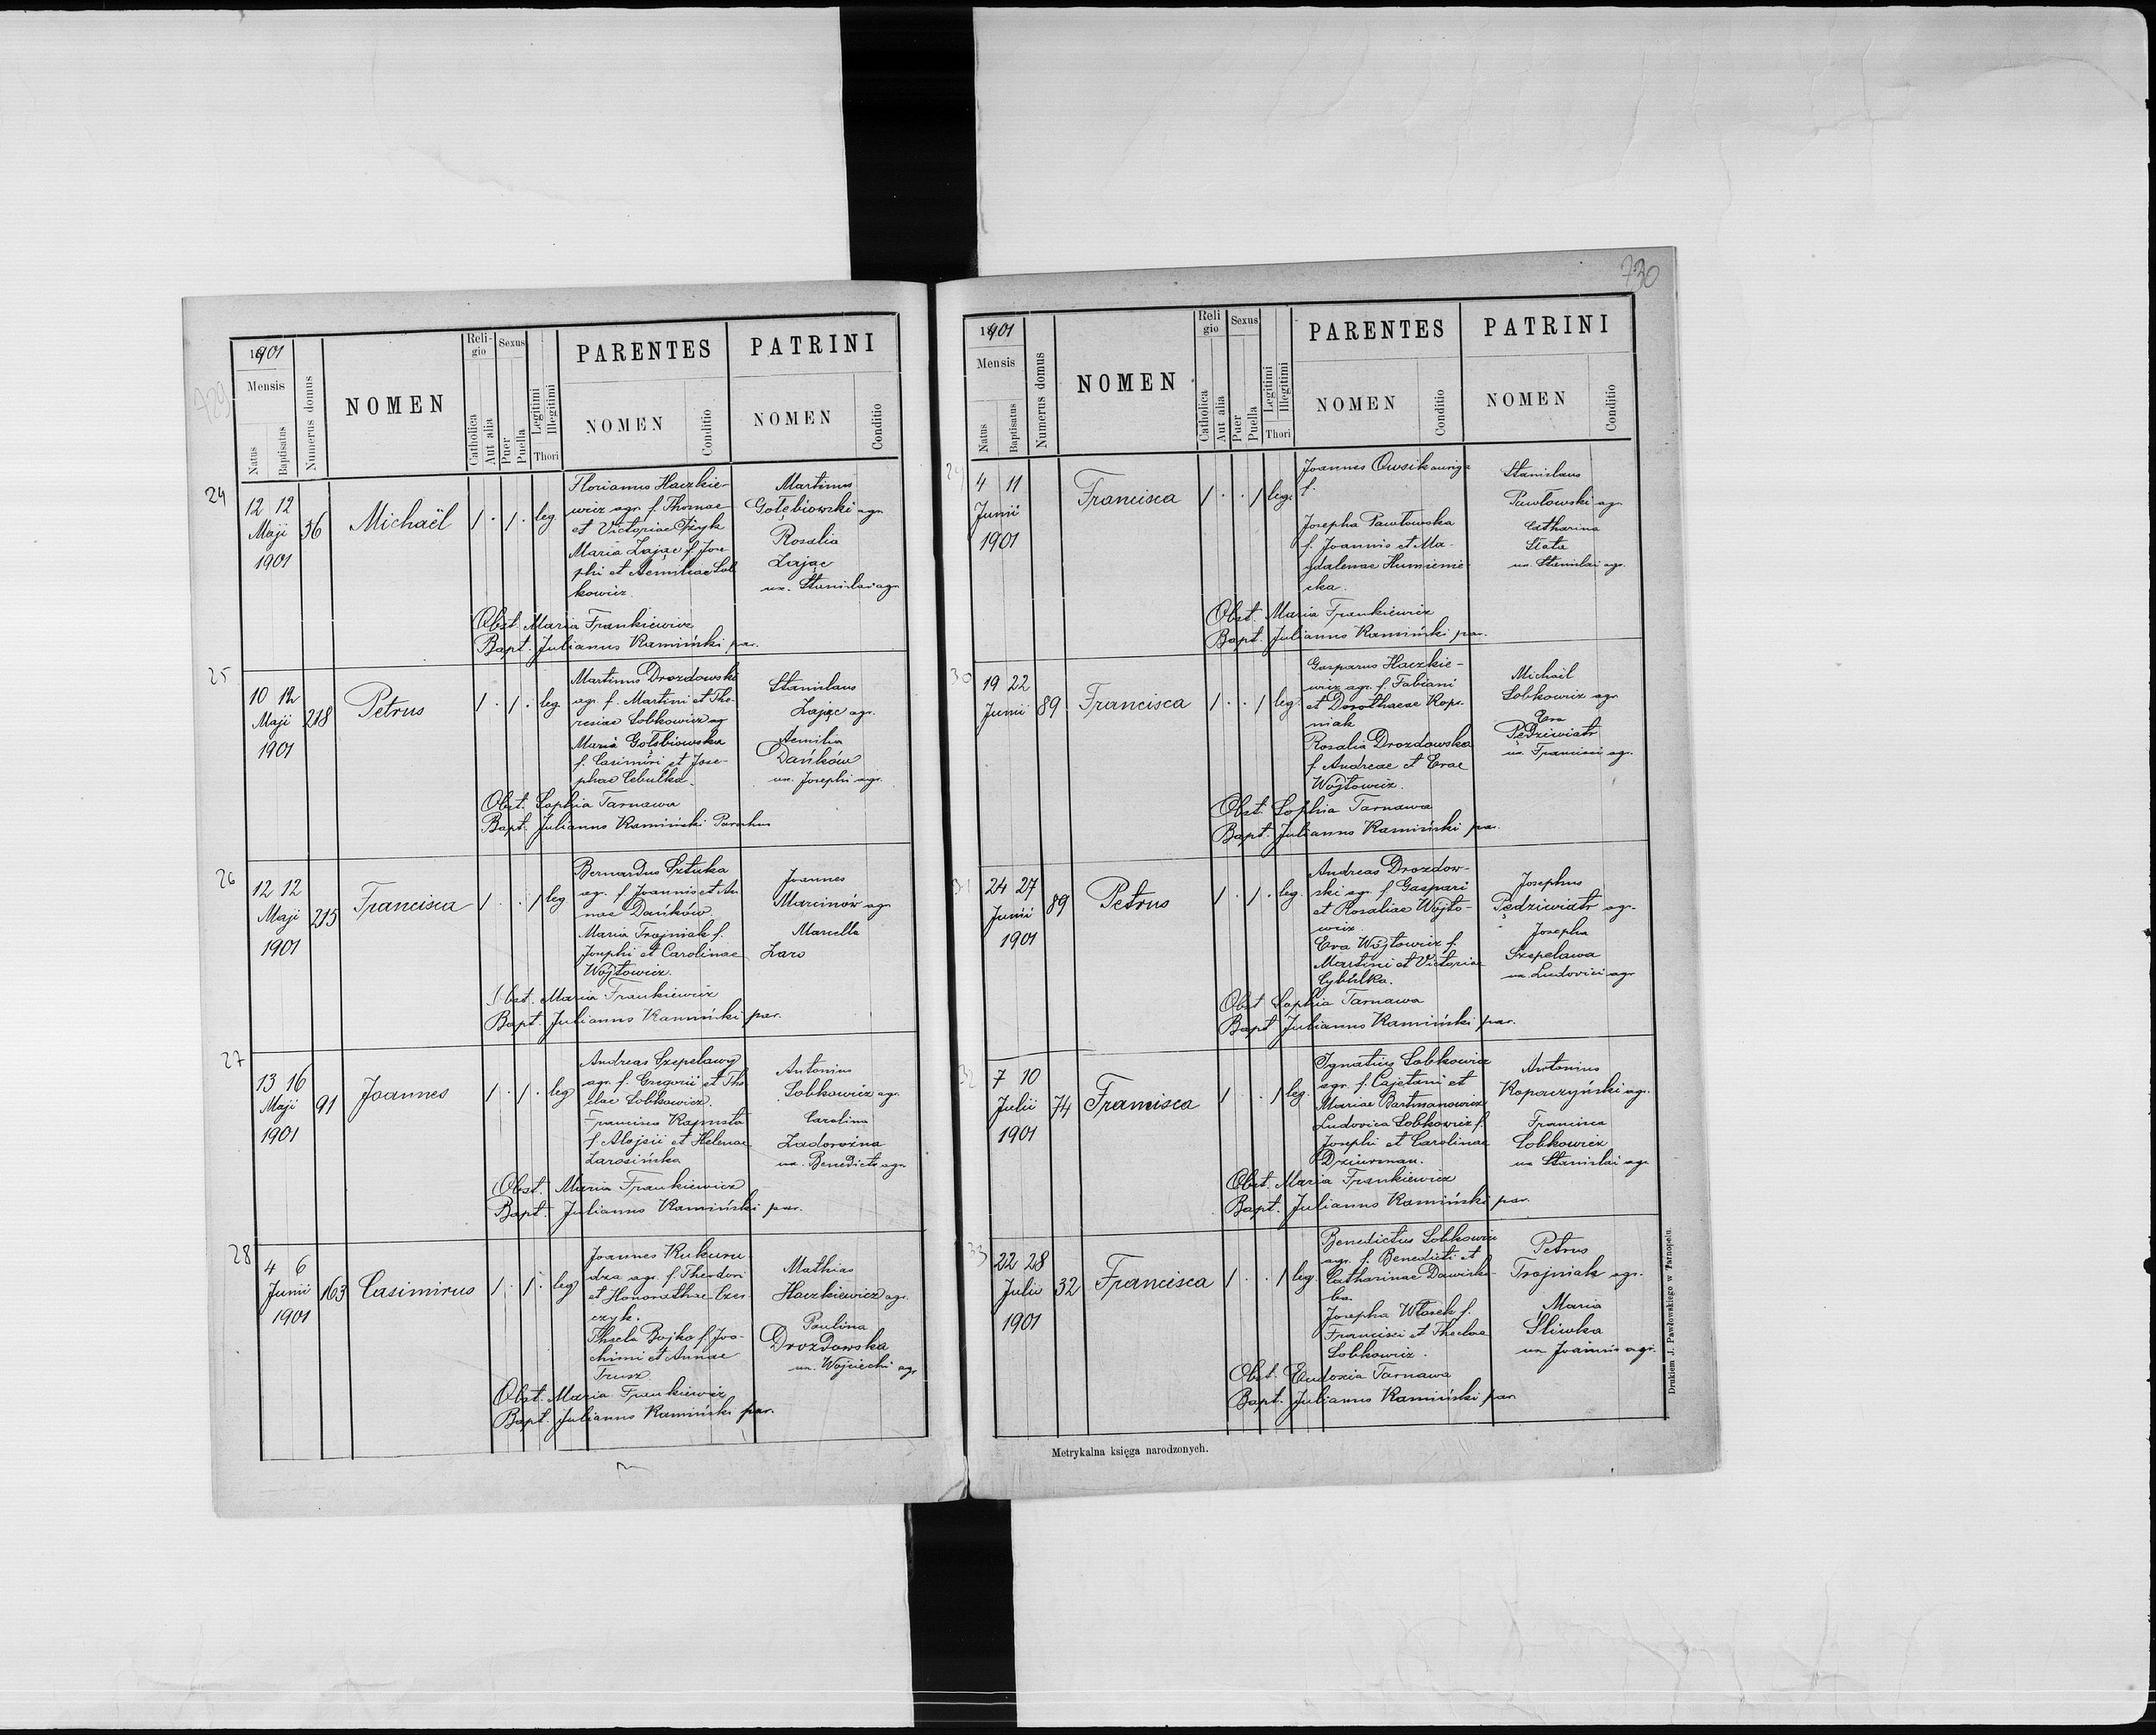 729
1901
Mensis
Natus
Baptisatus
Numerus domus
NOMEN
Reli-
gio
Catholica
Aut alia
Sexus
Puer
Puella
Legitimi
Illegitimi
Thori
PARENTES
NOMEN
Conditio
PATRINI
NOMEN
Conditio
24
12 12
Maji
1901
36
Michaël
1 . 1 . leg
Florianus Haczkie-
wicz agr. f. Thomae
et Victoriae
Maria Zając f. Jose-
phi et Aemiliae Sob
kowicz.
Martinus
Gołębiowski agr.
Rosalia
Zając
ux. Stanislai agr.
Obst. Maria Frankiewicz
Bapt. Julianus Kamiński par.
25
10 12
Maji
1901
218
Petrus
1 . 1 . leg
Martinus Drozdowski
agr. f. Martini et The-
resiae Sobkowicz ag
Maria Gołębiowska
f. Casimiri et Jose-
phae Cebulka.
Stanislaus
Zając agr.
Aemilia
Dańków
ux. Josephi agr.
Obst. Sophia Tarnawa
Bapt. Julianus Kamiński Parochus
26
12 12
Maji
1901
215
Francisca
1 . . 1 leg
Bernardus Sztuka
agr. f. Joannis et An
nae Dańków
Maria Trojniak f.
Josephi et Carolinae
Wójtowicz.
Joannes
Marcinów agr
Marcella
Zaro
Obst. Maria Frankiewicz
Bapt. Julianus Kamiński par.
27
13 16
Maji
1901
91
Joannes
1 . 1 . leg
Andreas Szepelawy
agr. f. Gregorii et The
clae Sobkowicz.
Francisca Kapusta
f. Alojsii et Helenae
Zarosińska
Antonius
Sobkowicz agr.
Carolina
Zadorożna
ux. Benedicti agr.
Obst. Maria Frankiewicz
Bapt. Julianus Kamiński par.
28
4 6
Junii
1901
163
Casimirus
1 . 1 . leg
Joannes Kukuru
dza agr. f. Theodori
et Honorathae Czer-
czyk.
Thecla Bojko f. Joa-
chimi et Annae
Trusz
Mathias
Haczkiewicz agr.
Paulina
Drozdowska
ux. Wojciechi agr
Obst. Maria Frankiewicz
Bapt. Julianus Kamiński par.
730
1901
Mensis
Natus
Baptisatus
Numerus domus
NOMEN
Reli
gio
Catholica
Aut alia
Sexus
Puer
Puella
Legitimi
Illegitimi
Thori
PARENTES
NOMEN
Conditio
PATRINI
NOMEN
Conditio
29
4 11
Junii
1901
Francisca
1 . . 1 leg.
Joannes Owsik auriga
f.
Josepha Pawłowska
f. Joannis et Ma-
gdalenae Humienie
cka.
Stanislaus
Pawłowski agr.
Catharina
ux. Stanislai agr.
Obst. Maria Frankiewicz
Bapt. Julianus Kamiński par.
30
19 22
Junii
89
Francisca
1 . . 1 leg.
Gasparus Haczkie-
wicz agr. f. Fabiani
et Dorothaeae Kop-
niak
Rosalia Drozdowska
f. Andreae et Evae
Wójtowicz.
Michaël
Sobkowicz agr
Eva
Pędziwiatr
ux. Francisci agr.
Obst. Sophia Tarnawa
Bapt. Julianus Kamiński par.
31
24 27
Junii
1901
89
Petrus
1 . 1 . leg.
Andreas Drozdow-
ski agr. f. Gaspari
et Rosaliae Wójto-
wicz.
Eva Wójtowicz f.
Martini et Victoriae
Cybulka.
Josephus
Pędziwiatr agr.
Josepha
Szepelawa
ux. Ludovici agr
Obst Sophia Tarnawa
Bapt Julianus Kamiński par.
32
7 10
Julii
1901
74
Francisca
1 . . 1 leg.
Ignatius Sobkowicz
agr. f. Cajetani et
Mariae Bartmanowicz
Ludovica Sobkowicz f.
Josephi et Carolinae
Dziurman.
Antonius
Kopaczyński agr.
Francisca
Sobkowicz
ux Stanislai agr
Obst. Maria Frankiewicz
Bapt. Julianus Kamiński par.
33
22 28
Julii
1901
32
Francisca
1 . . 1 leg.
Benedictus Sobkowicz
agr. f. Benedicti et
Catharinae
Josepha Włosek f.
Francisci et Theclae
Sobkowicz.
Petrus
Trojniak agr.
Maria
Śliwka
ux Joannis agr.
Obst. Eudoxia Tarnawa
Bapt. Julianus Kamiński par
Metrykalna księga narodzonych.
Drukiem J. Pawłowskiego w Tarnopolu.